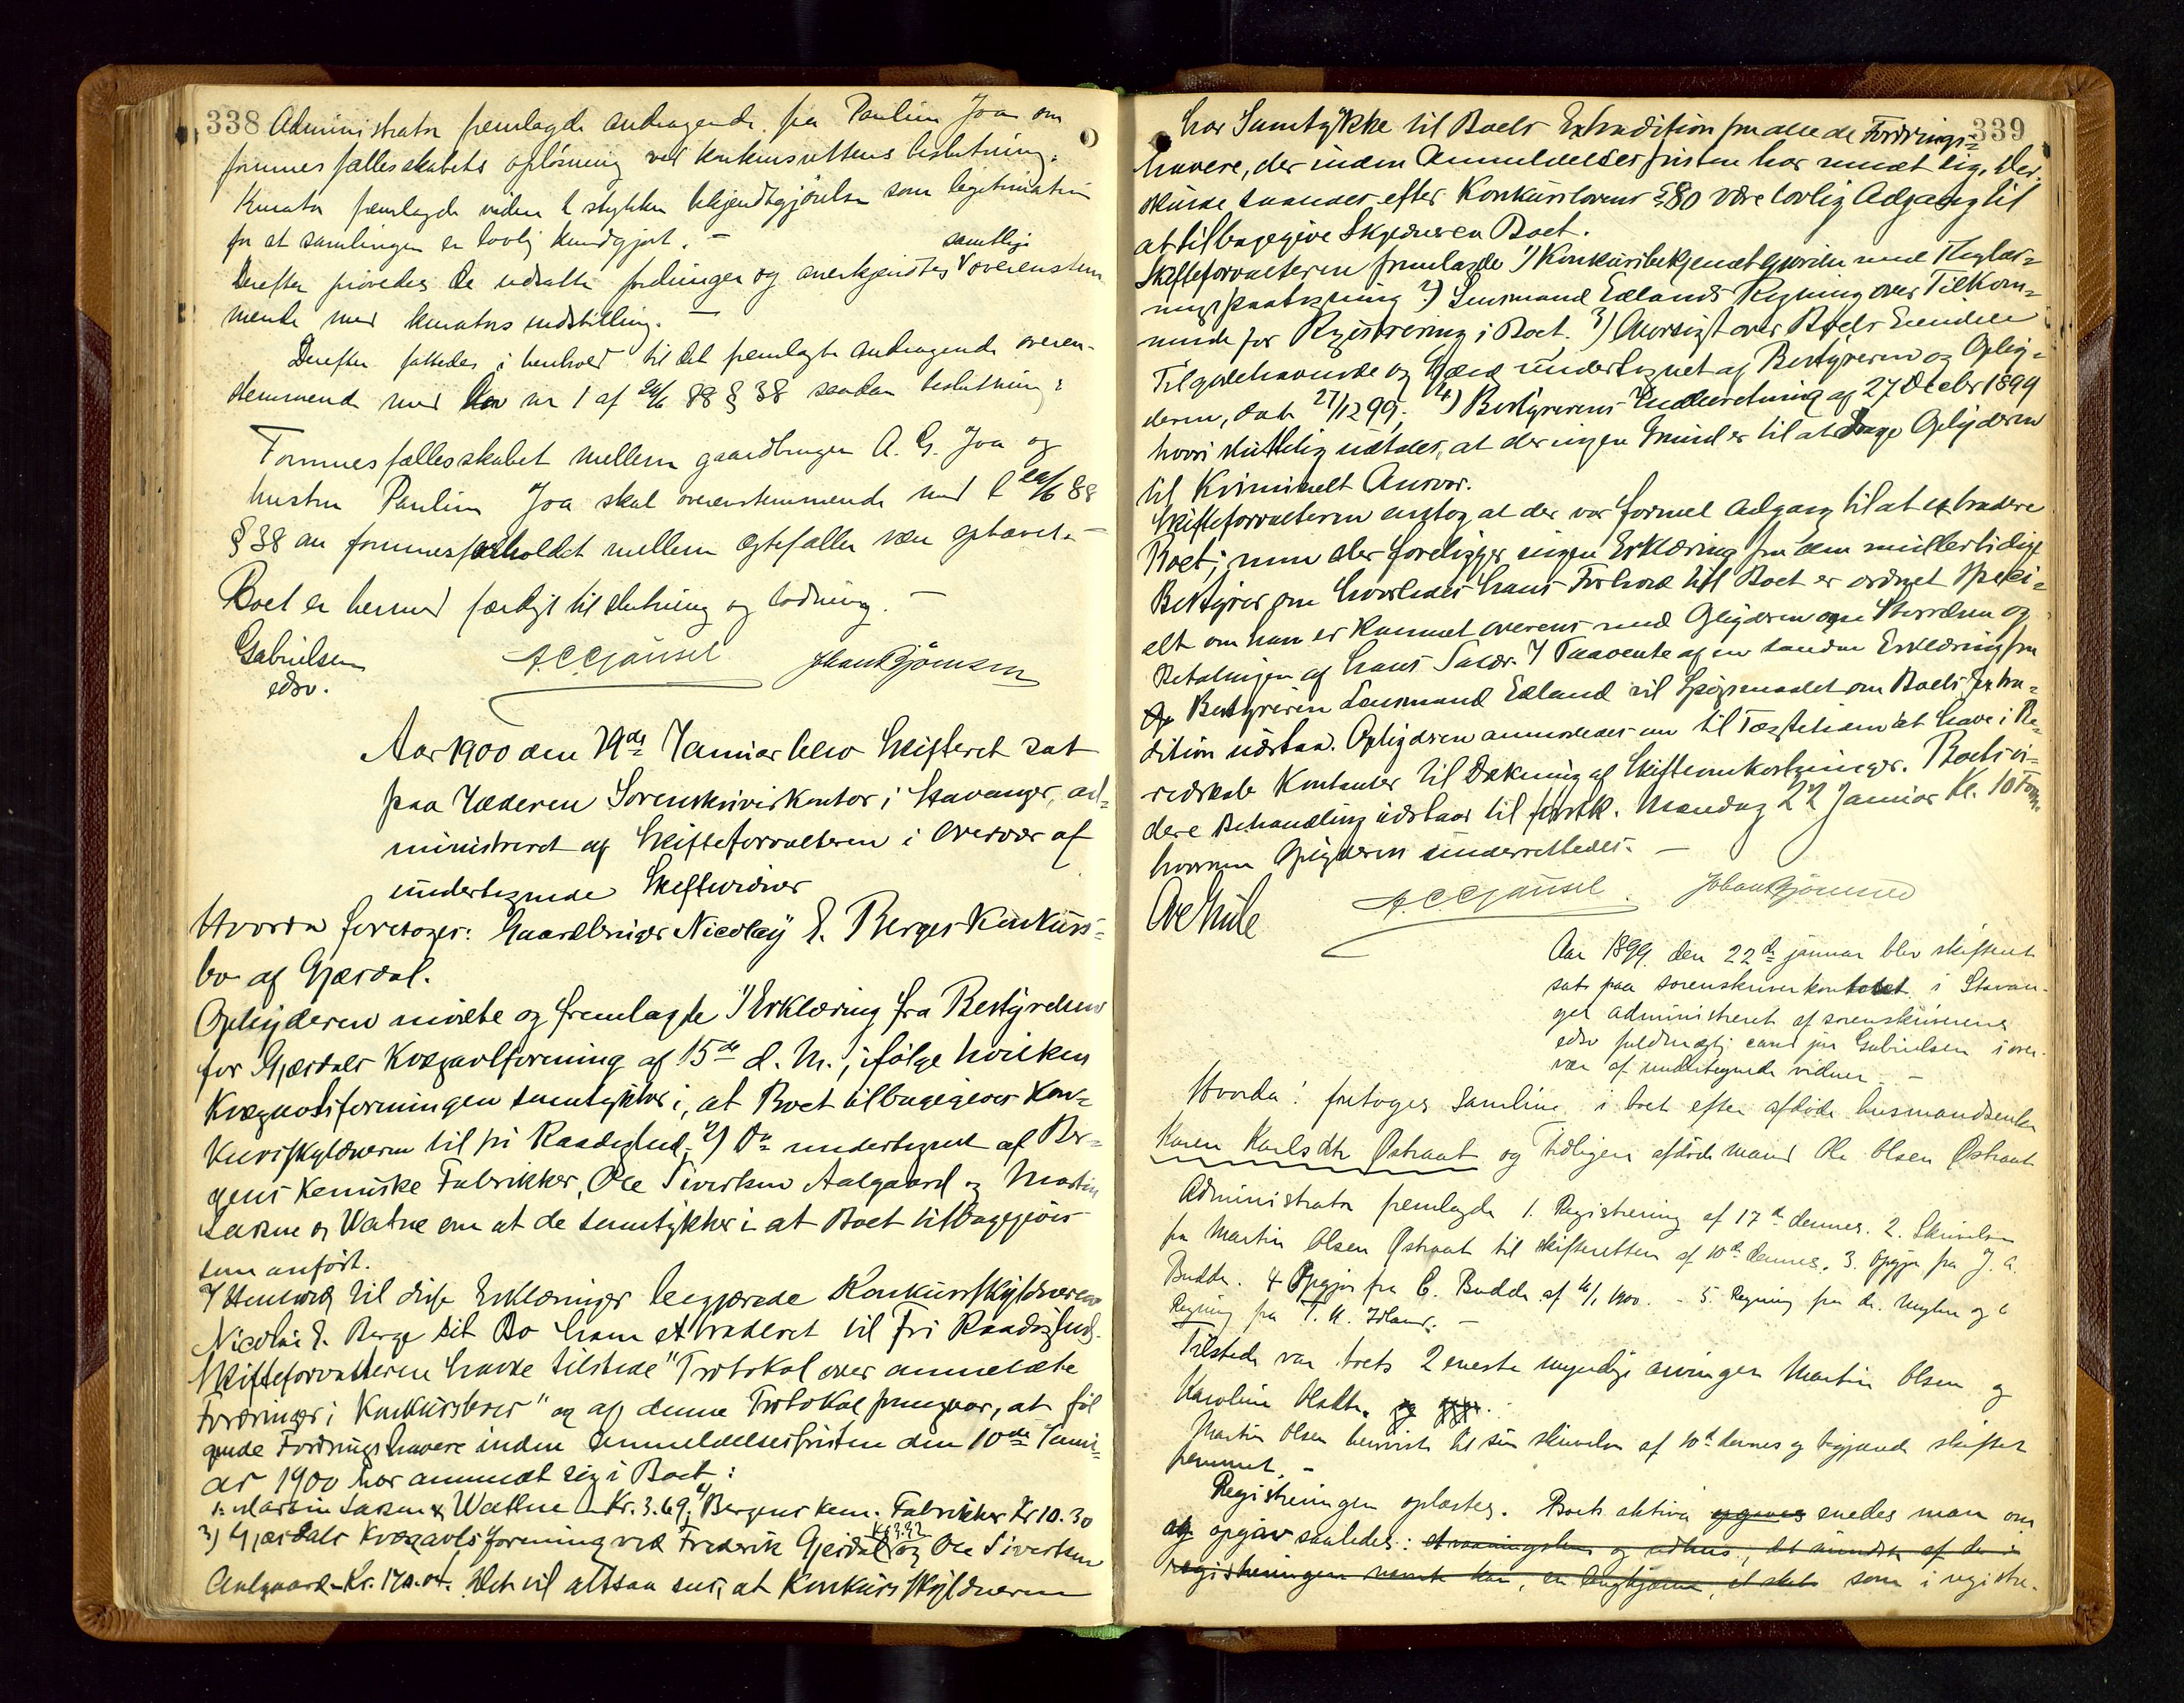 338
Administrator fremlagde andragende fra Pauline Joa om
formuesfællesskabets opløsning ved konkursrettens beslutning.
Kurator fremlagde viden 2 stykker bekjendtgjørelse som legitimation
for at samlingen er lovlig kundgjort. –
Derefter prøvedes de udsatte fordringer og anerkjendtes samtlige overenstem
mende med kurators indstilling. –
Derefter fattedes i henhold til det fremlagte andragende overen-
stemmende med lov nr 1 af 29/6 88 § 38 saadan beslutning:
Formuesfællesskabet mellem gaardbruger A. G. Joa og
hustru Pauline Joa skal overensstemmende med l 29/6 88
§ 38 om formuesforholdet mellem ægtefæller være ophævet. –
Boet er hermed færdigt til slutning og lodning. –
Gabrielsen
edsv.
A. C. Gjausel Johan Bjørnsen
Aar 1900 den 19de Januar blev Skifteret sat
paa Jæderen Sorenskriverkontor i Stavanger, ad-
ministreret af Skifteforvalteren i Overvær af
undertegnede Skiftevidner
Hvorda foretoges: Gaardbruger Nicolay E. Berges Konkurs-
bo af Gjæsdal.
Opbyderen mødte og fremlagde 1) Erklæring fra Bestyrelsen
for Gjæsdals Kvægavlforening af 15de d. M., ifølge hvilken
Kvægavlsforeningen samtykker i, at Boet tilbagegives Kon-
kursskyldneren til fri Raadighed, 2) Do undertegnet af Ber-
gens Kemiske Fabrikker, Ole Sivertsen Aalgaard og Martin
Lakne og Watne om at de samtykker i at Boet tilbagegives
som anført.
I Henhold til disse Erklæringer begjærede Konkursskyldneren
Nicolai E. Berge sit Bo ham extraderet til Fri Raadighed.
Skifteforvalteren havde tilstede "Protokol over anmeldte
Fordringer i Konkursboer" og af denne Protokol fremgaar, at føl
gende Fordringshavere inden Anmeldelsesfristen den 10de Janu-
ar 1900 har anmeldt sig i Boet:
1. Martin Lakne & Wathne Kr. 3.69, 2) Bergens kem. Fabrikker Kr 10.30
3) Gjæsdals Kvægavlsforening ved Frederik Gjesdal og Ole Sivertsen
Aalgaard – Kr. 170.04. Det vil altsaa sees, at Konkursskyldneren
339
har Samtykke til Boets Extradition fra alle de Fordrings-
havere, der inden Anmeldelsesfristen har meldt sig. Der
skulde saaledes efter Konkurslovens § 80 være lovlig Adgang til
at tilbagegive Skyldneren Boet.
Skifteforvalteren fremlagde 1) Konkursbekjendtgjørelse med Thinglæs-
ningspaategning 2) Lensmand Edlands Regning over Tilkom-
mende for Registrering i Boet. 3) Oversigt over Boets Eiendele
Tilgodehavende og Gjæld undertegnet af Bestyreren og Opby-
deren, dat. 27/12 99. 4) Bestyrerens Indberetning af 27 Decbr 1899
hvori sluttelig udtales, at der ingen Grund er til at drage Opbyderen
til Kriminelt Ansvar.
Skifteforvalteren antog at der var formel Adgang til at extradere
Boet; men der foreligger ingen Erklæring fra den midlertidige
Bestyrer om hvorledes hans Forhold til Boet er ordnet speci-
elt om han er kommet overens med Opbyderen om Størrelsen og
Betalingen af hans Salær. I Paavente af en saadan Erklæring fra
Bestyreren Lensmand Edland vil Spørgsmaalet om Boets Extra-
dition udstaa. Opbyderen anmodedes om til Tægtedagen at have i Be-
redskab Kontanter til Dækning af Skifteomkostninger. Boets vi-
dere Behandling udstaar til førstk. Mandag 22 Januar Kl. 10 Form.
hvorom Opbyderen underrettedes. –
A. C. Gjausel. Johan Bjørnsen
Aar 1899 den 22de januar blev skifteret
sat paa sorenskriverkontoret i Stavan-
ger administreret af sorenskriverens
edsv fuldmægtig cand jur Gabrielsen i over-
vær af undertegnede vidner –
Hvorda: foretoges Samling i boet efter afdøde husmandsenke
Karen Karlsdtr Østraat og tidligere afdøde mand Ole Olsen Østraat
Administrator fremlagde 1. Registrering af 17de dennes. 2. Skrivelse
fra Martin Olsen Østraat til skifteretten af 10de dennes, 3. Opgjør fra J. A.
Budde. 4 Opgjør fra C. Budde af 16/1 1900. – 5. Regning fra dr. og 6
Regning fra T. K.
Tilstede var boets 2 eneste myndige arvinger Martin Olsen og
Karoline Olsdtr.
Martin Olsen henviste til sin skrivelse af 10de dennes og begjærede skiftet
fremmet. –
Registreringen oplæstes. Boets aktiva opgaves enedes man om
at opgjøre saaledes: et vaaningshus og udhus, det mindste af de i
registreringen nævnte kar, en, et skab som i registre-